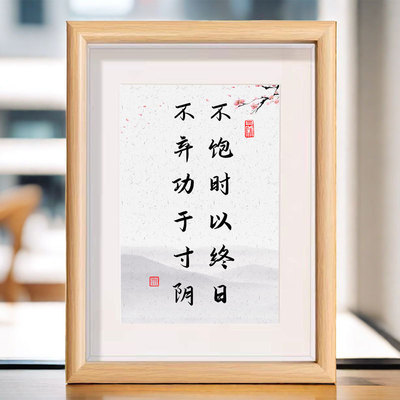 不饱时以终日
不弃功于寸阴